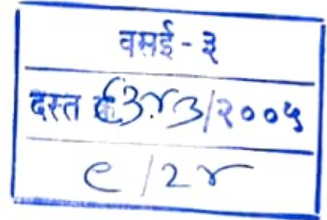 वसई - ३
दस्त क्र ३४३/२००५
९/२४